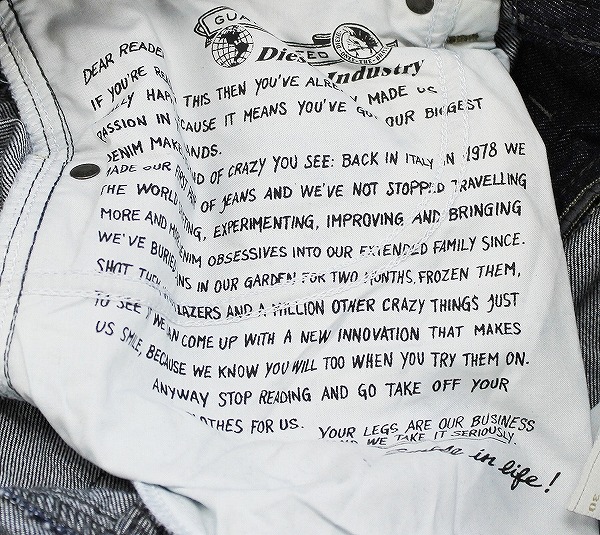 GUA
Dies Industry
DEAR READE
IF YOU'RE RE THIS THEN YOU'VE ALRE MADE US
LY HAP CAUSE IT MEANS YOU'VE GO OUR BIGGEST
PASSION IN NDS.
DENIM MAK ND OF CRAZY YOU SEE: BACK IN ITALY IN 1978 WE
MADE OUR FIRST PAIR OF JEANS AND WE'VE NOT STOPPED TRAVELLING
THE WORLD TING, EXPERIMENTING, IMPROVING AND BRINGING
MORE AND MO ENIM OBSESSIVES INTO OUR EXTENDED FAMILY SINCE.
WE'VE BURIED NS IN OUR GARDEN FOR TWO MONTHS, FROZEN THEM,
SHOT THEM LAZERS AND A MILLION OTHER CRAZY THINGS JUST
TO SEE IF WE CAN COME UP WITH A NEW INNOVATION THAT MAKES
US SMILE, BECAUSE WE KNOW YOU WILL TOO WHEN YOU TRY THEM ON.
ANYWAY STOP READING AND GO TAKE OFF YOUR
OTHES FOR US. YOUR LEGS ARE OUR BUSINESS
AND WE TAKE IT SERIOUSLY.
in life!